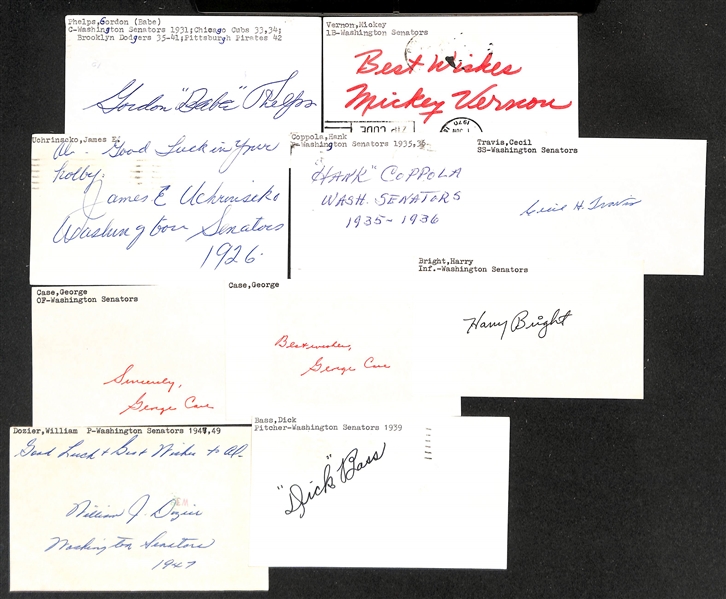 Phelps,Gordon (Babe)
C-Washington Senators 1931;Chicago Cubs 33,34;
Brooklyn Dodgers 35-41;Pittsburgh Pirates 42
Gordon "Babe" Phelps
Vernon,Mickey
1B-Washington Senators
Best Wishes
Mickey Vernon
ZIP CODE
1970
Uchrinscko,James E.
Al - Good Luck in your
hobby.
James E Uchrinscko
Washington Senators
1926.
Coppola,Hank
P-Washington Senators 1935,36
"HANK" COPPOLA
WASH. SENATORS
1935-1936
Travis,Cecil
SS-Washington Senators
Cecil H. Travis
Bright,Harry
Inf.-Washington Senators
Harry Bright
Case,George
OF-Washington Senators
Sincerely,
George Case
Case,George
Best wishes,
George Case
Dozier,William P-Washington Senators 1947,49
Good Luck & Best Wishes to Al.
William J. Dozier
Washington Senators
1947
Bass,Dick
Pitcher-Washington Senators 1939
"Dick" Bass